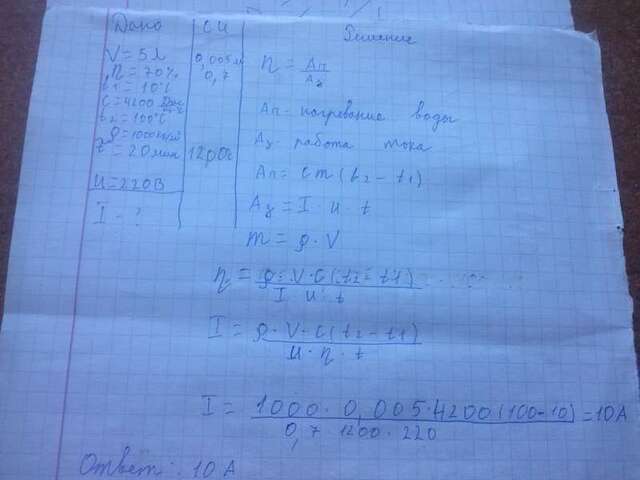 Дано СИ Решение
V = 5 л 0,005 м
η = 70% 0,7
t1 = 10°C
C = 4200
t2 = 100°C
ρ = 1000
t = 20 мин 1200с
U = 220В
I - ?
η = Aп / Aз
Aп - нагревание воды
Aз - работа тока
Aп = cm(t2 - t1)
Aз = I · u · t
m = ρ · V
η = ρ · V · C(t2 - t1) / I · u · t
I = ρ · V · C(t2 - t1) / u · η · t
I = 1000 · 0,005 · 4200(100-10) / 0,7 · 1200 · 220 = 10 A
Ответ: 10 A